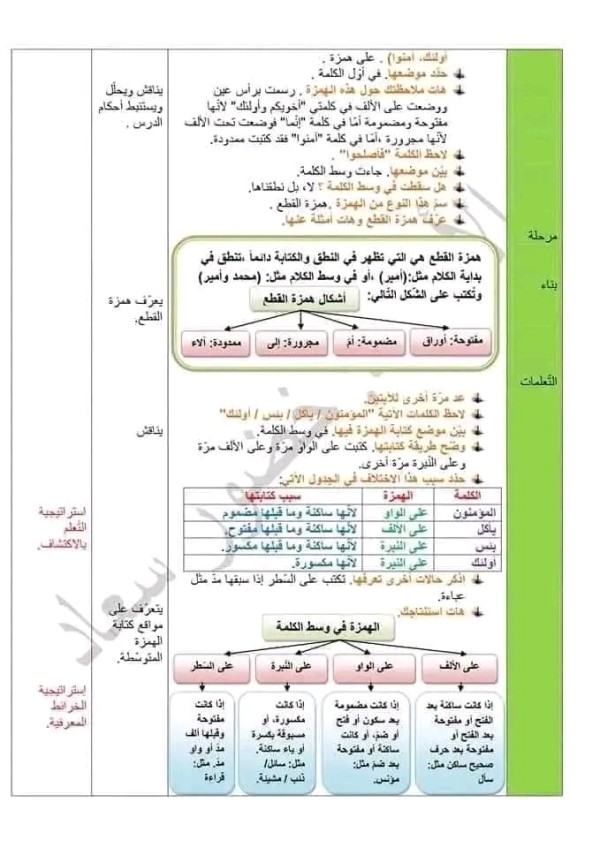 أولئك، آمنوا) . على همزة .
حدّد موضعها. في أوّل الكلمة .
هات ملاحظتك حول هذه الهمزة . رسمت برأس عين
ووضعت على الألف في كلمتي "أخويكم وأولئك" لأنّها
مفتوحة ومضمومة أمّا في كلمة "إنّما" فوضعت تحت الألف
لأنّها مجرورة ،أمّا في كلمة "آمنوا" فقد كتبت ممدودة.
لاحظ الكلمة "فأصلحوا" .
بيّن موضعها. جاءت وسط الكلمة.
هل سقطت في وسط الكلمة ؟ لا، بل نطقناها.
سمّ هذا النوع من الهمزة .همزة القطع .
عرّف همزة القطع وهات أمثلة عنها.
يناقش ويحلّل
ويستنبط أحكام
الدرس .
مرحلة
بناء
التّعلمات
همزة القطع هي التي تظهر في النطق والكتابة دائماً ،تنطق في
بداية الكلام مثل:(أمير) ،أو في وسط الكلام مثل: (محمد وأمير)
وتُكتب على الشّكل التّالي:
أشكال همزة القطع
مفتوحة: أوراق
مضمومة: أمّ
مجرورة: إلى
ممدودة: آلاء
يعرّف همزة
القطع.
عد مرّة أخرى للآيتين.
لاحظ الكلمات الآتية "المؤمنون / يأكل / بئس / أولئك"
بيّن موضع كتابة الهمزة فيها. في وسط الكلمة.
وضّح طريقة كتابتها. كتبت على الواو مرّة وعلى الألف مرّة
وعلى النّبرة مرّة أخرى.
حدّد سبب هذا الاختلاف في الجدول الآتي:
يناقش
الكلمة الهمزة سبب كتابتها
المؤمنون على الواو لأنّها ساكنة وما قبلها مضموم
يأكل على الألف لأنّها ساكنة وما قبلها مفتوح.
بئس على النّبرة لأنّها ساكنة وما قبلها مكسور.
أولئك على النّبرة لأنّها مكسورة.
استراتيجية
التّعلم
بالاكتشاف.
اذكر حالات أخرى تعرفها. تكتب على السّطر إذا سبقها مدّ مثل
عباءة.
هات استنتاجك.
يتعرّف على
مواقع كتابة
الهمزة
المتوسّطة.
الهمزة في وسط الكلمة
على الألف
على الواو
على النّبرة
على السّطر
إذا كانت ساكنة بعد
الفتح أو مفتوحة
بعد الفتح أو
مفتوحة بعد حرف
صحيح ساكن مثل:
سأل
إذا كانت مضمومة
بعد سكون أو فتح
أو ضمّ، أو كانت
ساكنة أو مفتوحة
بعد ضمّ مثل:
مؤنس.
إذا كانت
مكسورة، أو
مسبوقة بكسرة
أو ياء ساكنة.
مثل: سائل/
ذئب / مشيئة.
إذا كانت
مفتوحة
وقبلها ألف
مدّ أو واو
مدّ. مثل:
قراءة
إستراتيجية
الخرائط
المعرفية.
خضور سعاد